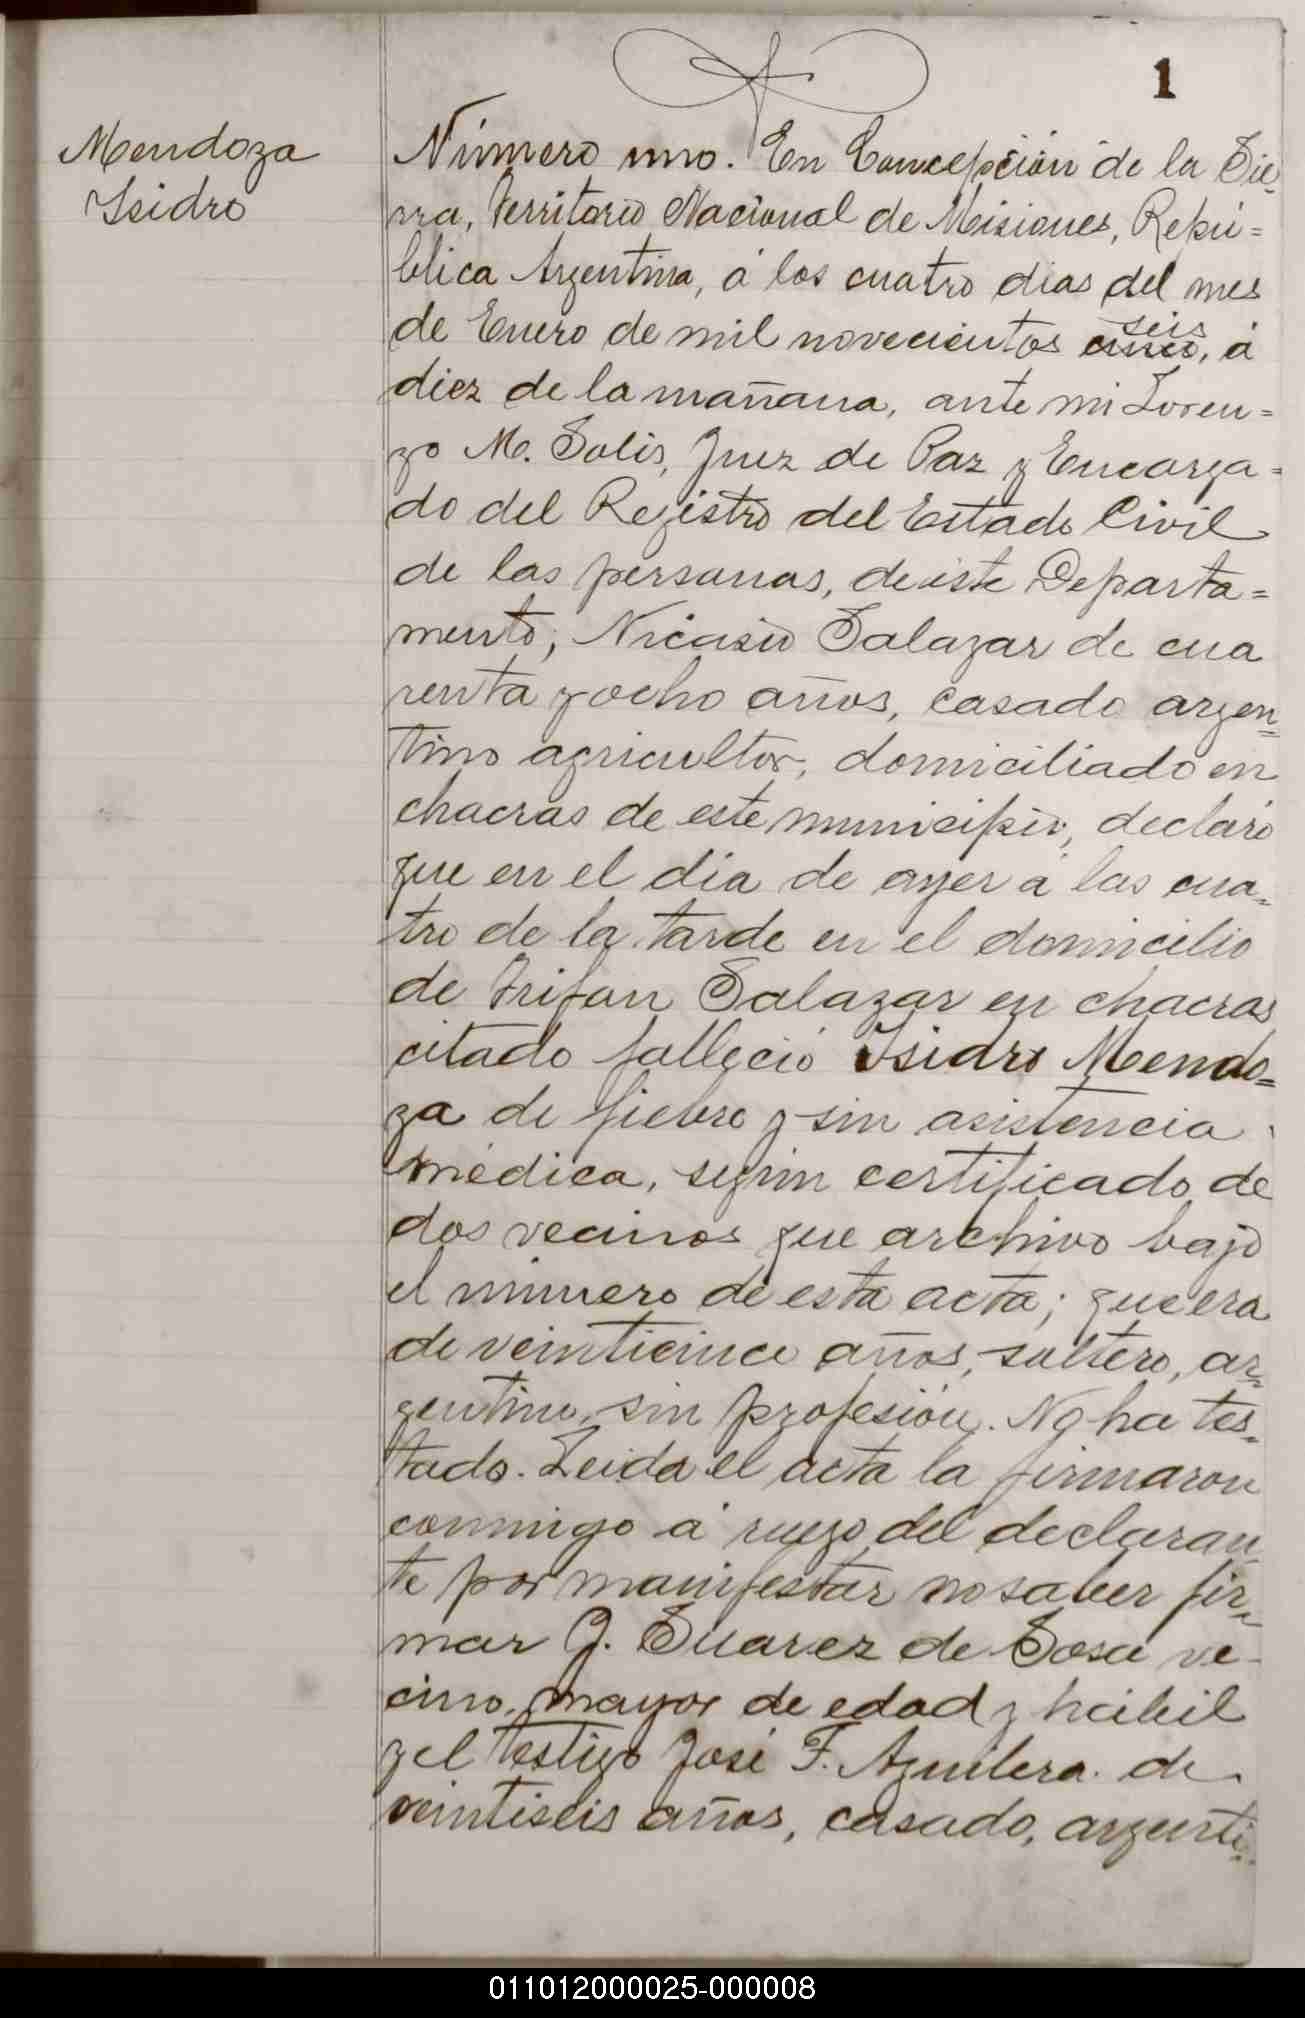 1
Mendoza
Isidro
Número uno. En Concepción de la Sie-
rra, Territorio Nacional de Misiones, Repú=
blica Argentina, á los cuatro dias del mes
seis
de Enero de mil novecientos cinco, á
diez de la mañana, ante mi Loren=
zo M. Solis, Juez de Paz y Encarga=
do del Registro del Estado Civil
de las personas, de este Departa=
mento; Nicasio Salazar de cua
renta y ocho años, casado argen=
tino agricultor, domiciliado en
chacras de este municipio, declaró
que en el dia de ayer á las cua=
tro de la tarde en el domicilio
de Trifon Salazar en chacras
citado falleció Isidro Mendo=
za de fiebre y sin asistencia
médica, según certificado de
dos vecinos que archivo bajo
el número de esta acta; que era
de veinticinco años, soltero, ar=
gentino, sin profesión. No ha tes=
tado. Leida el acta la firmaron
conmigo á ruego del declaran
te por manifestar no saber fir=
mar J. Suarez de Sosa ve-
cino, mayor de edad y hábil
y el testigo José F. Aguilera de
veintiseis años, casado, argenti=
011012000025-000008